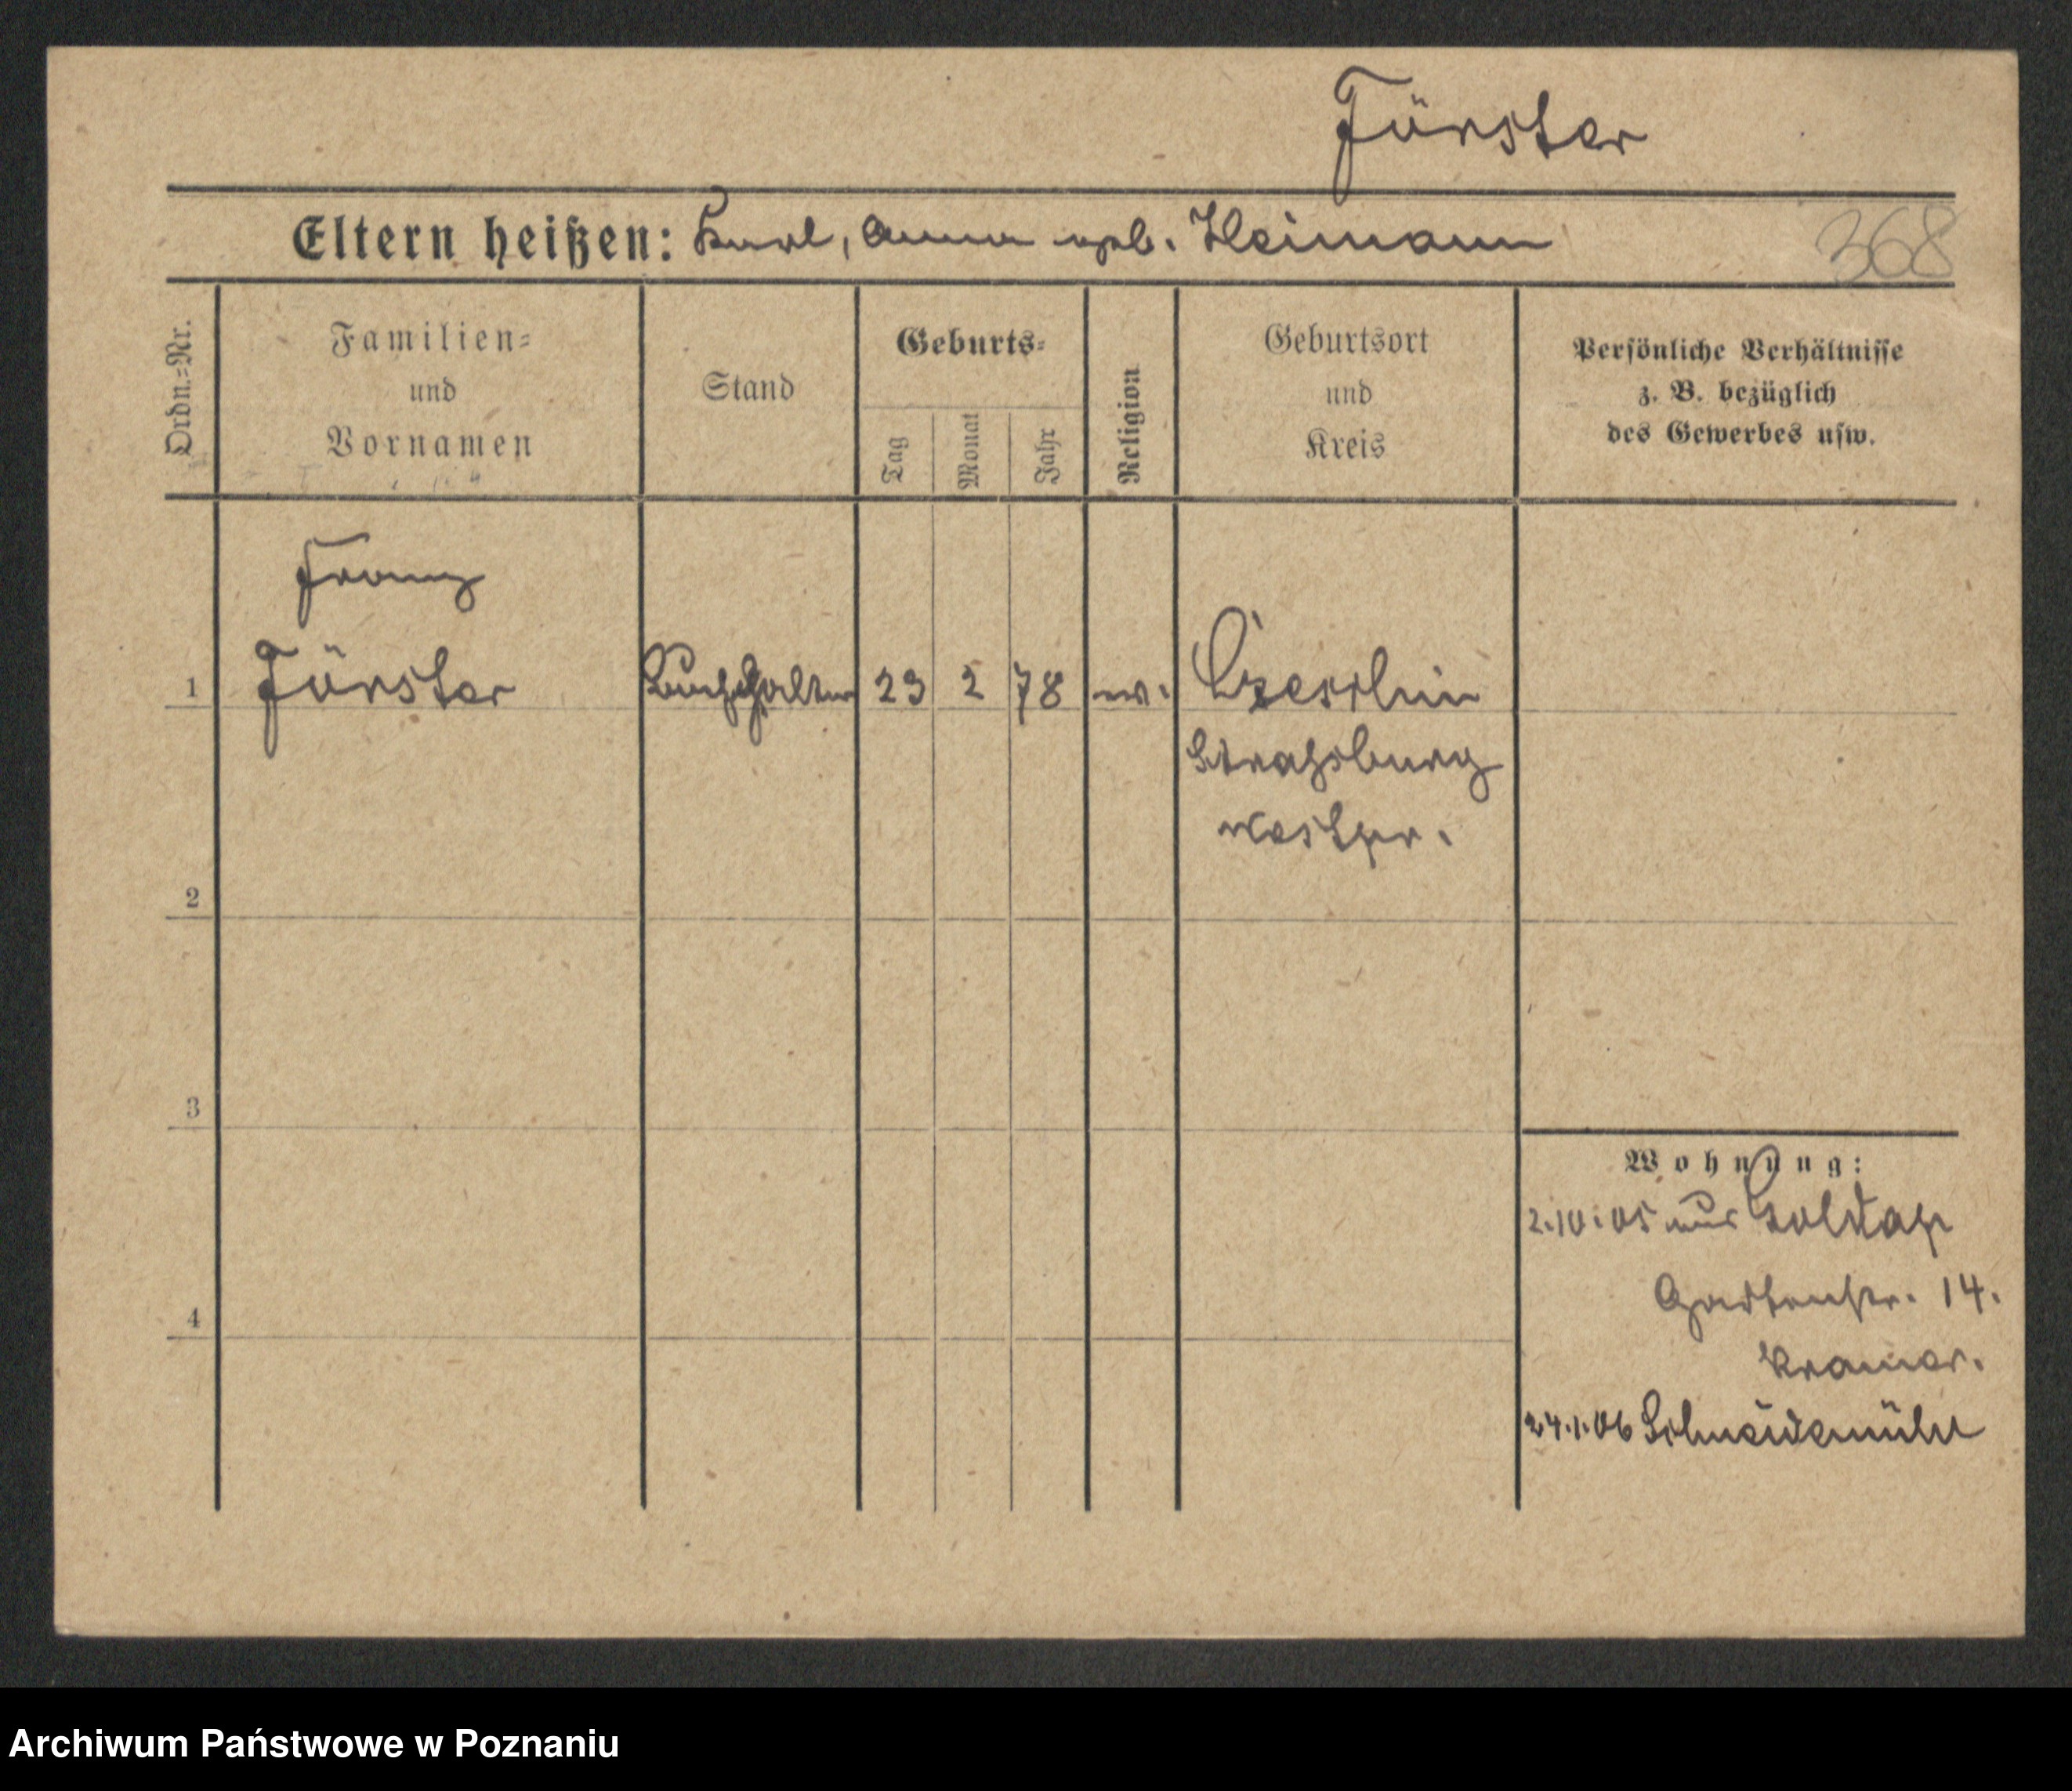 Förster
Eltern heißen: Karl, Anna geb. Heimann
368
Ordn.=Nr.
Familien=
und
Vornamen
Stand
Geburts=
Tag
Monat
Jahr
Religion
Geburtsort
und
Kreis
Persönliche Verhältnisse
z. B. bezüglich
des Gewerbes usw.
Franz
1 Förster Buchhalter 23 2 78
Strasburg
Westpr.
2
3
4
Wohnung:
2.10.05 aus Goldap
Gartenstr. 14.
Kramer.
24.1.06 Schneidemühl
Archiwum Państwowe w Poznaniu